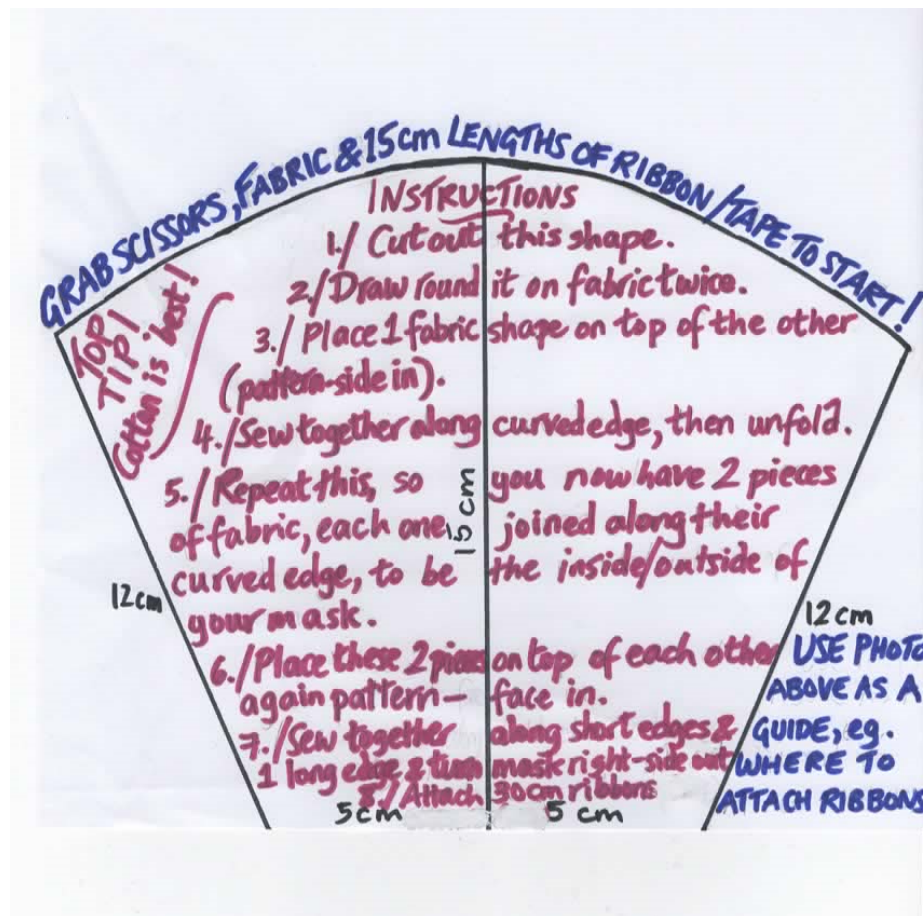 GRAB SCISSORS, FABRIC & 15cm LENGTHS OF RIBBON/TAPE TO START!
TOP
TIP!
Cotton is best!
INSTRUCTIONS
1./ Cut out this shape.
2./ Draw round it on fabric twice.
3./ Place 1 fabric shape on top of the other
(pattern-side in).
4./ Sew together along curved edge, then unfold.
5./ Repeat this, so you now have 2 pieces
of fabric, each one joined along their
curved edge, to be the inside/outside of
your mask.
6./ Place these 2 pieces on top of each other
again pattern-face in.
7./ Sew together along short edges &
1 long edge & turn mask right-side out
8./ Attach 30cm ribbons
15 cm
12 cm
12 cm
5 cm
5 cm
USE PHOTO
ABOVE AS A
GUIDE, eg.
WHERE TO
ATTACH RIBBONS